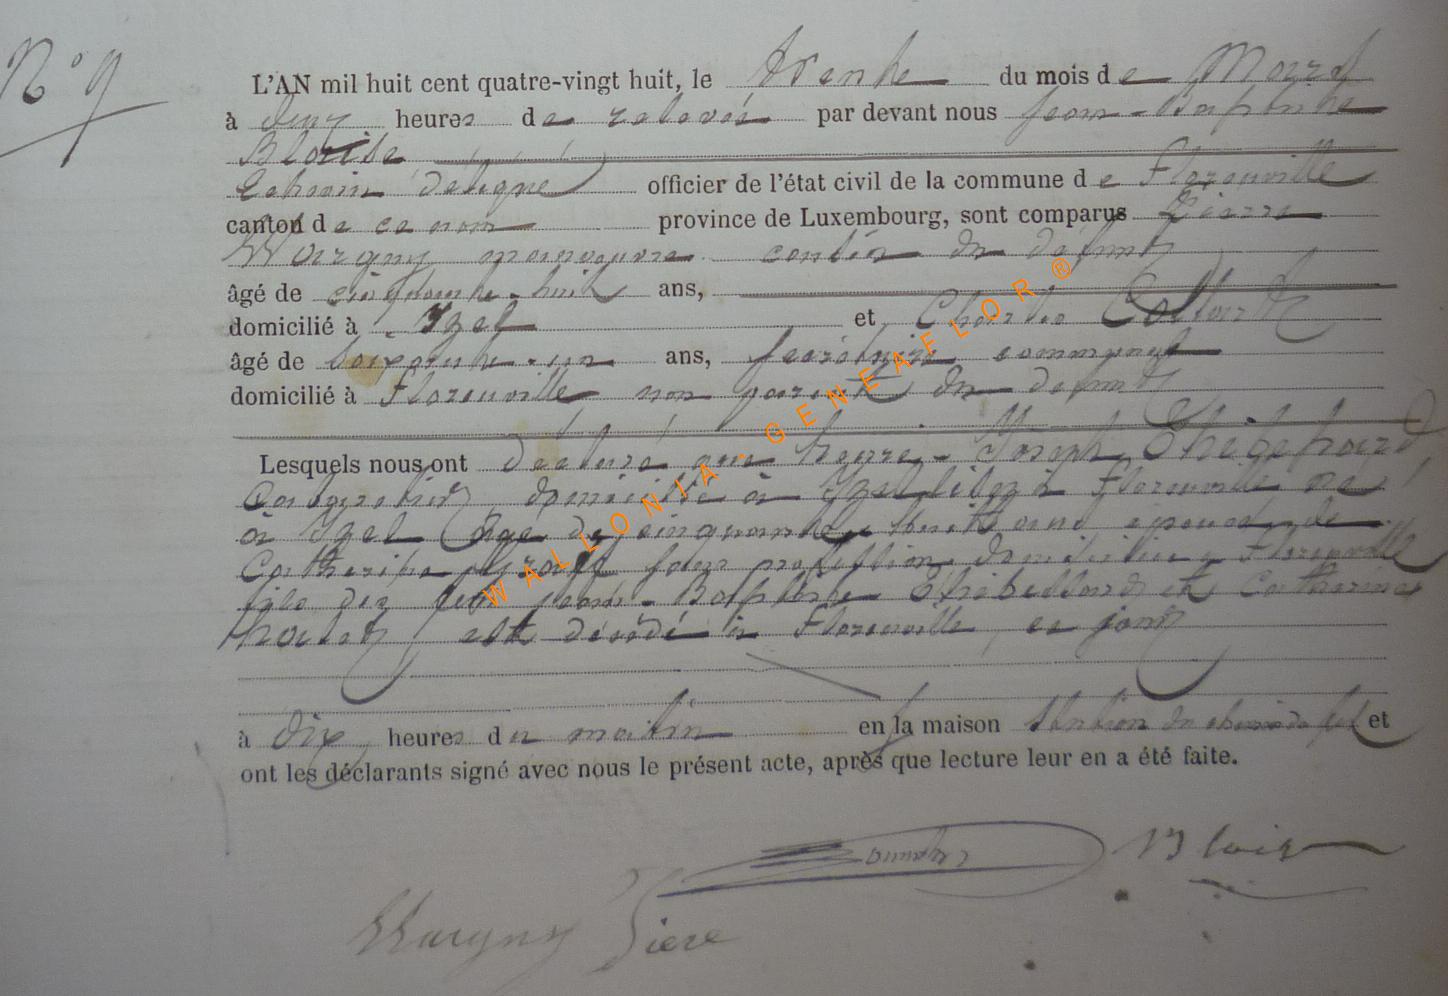 N° 9
L'AN mil huit cent quatre-vingt huit, le trente du mois de Mars
à deux heures de relevée par devant nous Jean-Baptiste
Blaise
Echevin délégué officier de l'état civil de la commune de Florenville
canton de ce nom province de Luxembourg, sont comparus Pierre
Wargny manoeuvre cousin du défunt
âgé de cinquante-huit ans,
domicilié à Izel et Charles
âgé de soixante-un ans, secrétaire communal
domicilié à Florenville non parent du défunt
Lesquels nous ont déclaré que Joseph
domicilié à Florenville né
à Izel âgé de cinquante huit ans époux de
Catherine sans profession domiciliée à Florenville
fils de feu Jean-Baptiste et Catherine
est décédé à Florenville, ce jour
à dix heures du matin en la maison station du chemin de fer et
ont les déclarants signé avec nous le présent acte, après que lecture leur en a été faite.
Blaise
Wargny Piere
WALLONIA-GENEAFLOR ®